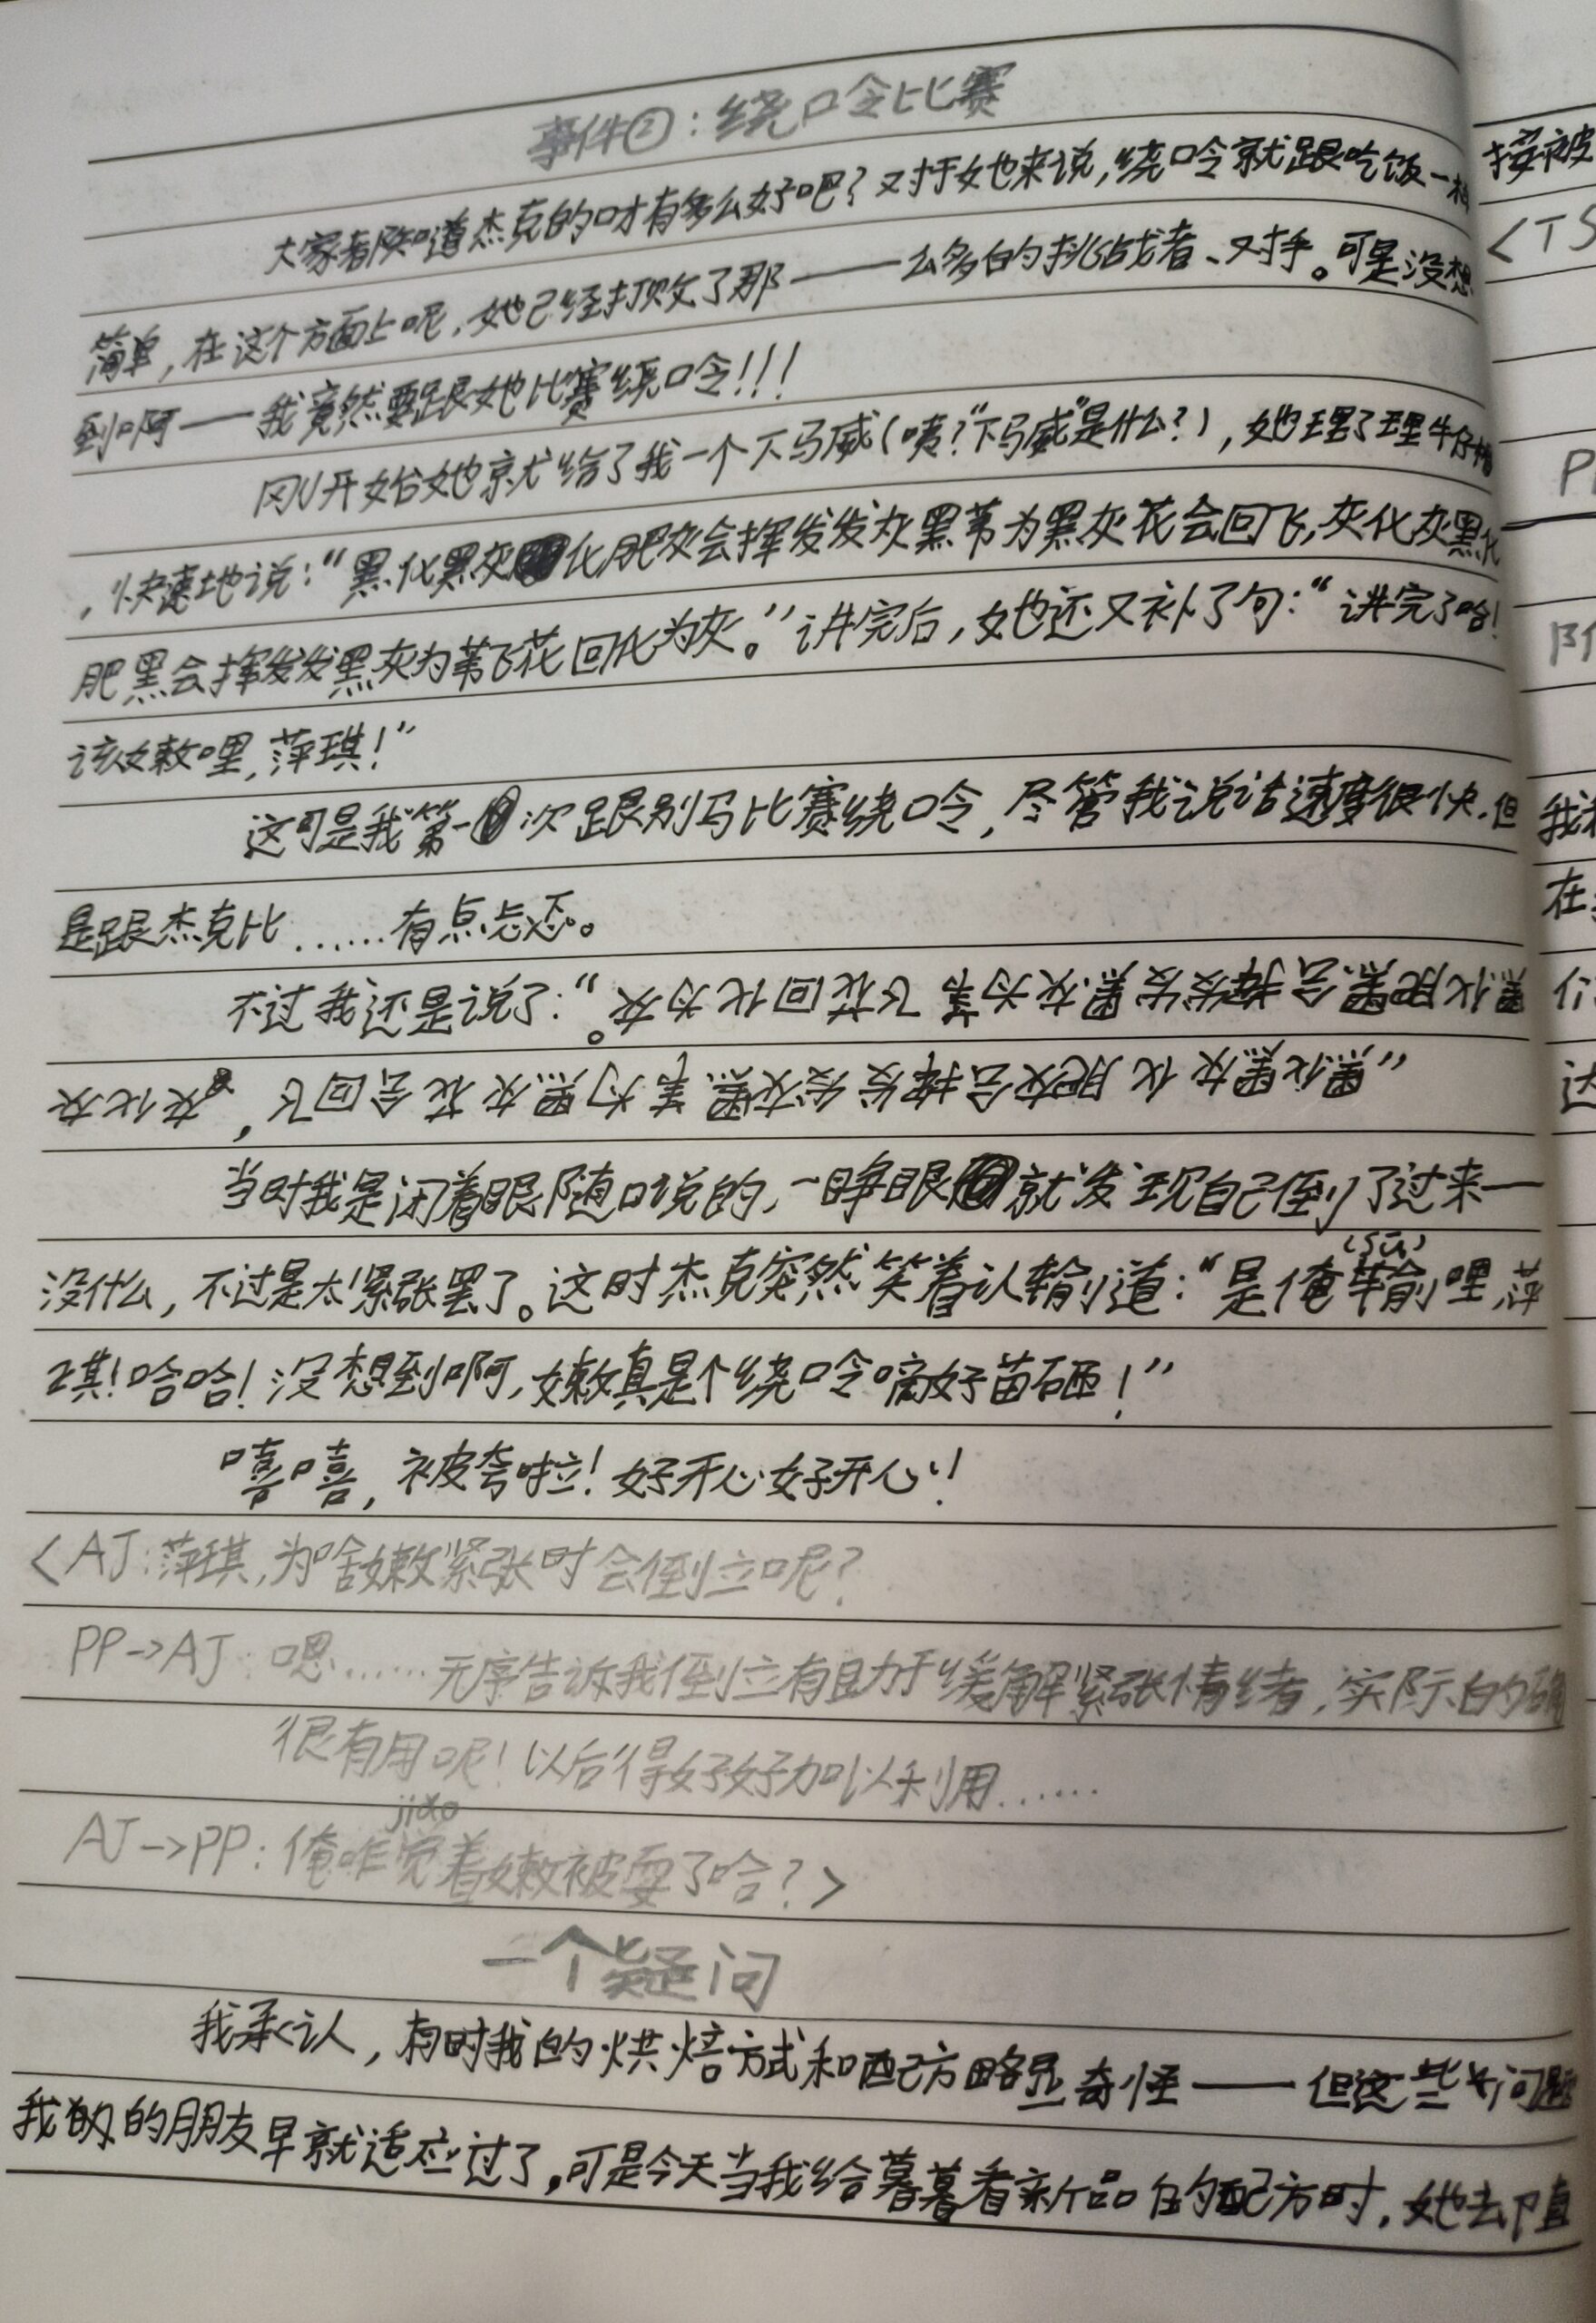 事件②：绕口令比赛
大家都知道杰克的口才有多么好吧？对于她来说，绕口令就跟吃饭一样
简单，在这个方面上呢，她已经打败了那——么多的挑战者、对手。可是没想
到啊——我竟然要跟她比赛绕口令！！！
刚开始她就给了我一个下马威（咦？“下马威”是什么？），她理了理牛仔帽
，快速地说：“黑化黑灰化肥灰会挥发发灰黑苇为黑灰花会回飞，灰化灰黑化
肥黑会挥发发黑灰为苇飞花回化为灰。”讲完后，她还又补了句：“讲完了哈！
该嫩哩，萍琪！”
这可是我第一次跟别马比赛绕口令，尽管我说话速度很快，但
是跟杰克比……有点忐忑。
不过我还是说了：
“黑化黑灰化肥灰会挥发发灰黑苇为黑灰花会回飞，灰化灰
黑化肥黑会挥发发黑灰为苇飞花回化为灰。”
当时我是闭着眼随口说的，一睁眼就发现自己倒了过来——
没什么，不过是太紧张罢了。这时杰克突然笑着认输道：“是俺输(sū)哩，萍
琪！哈哈！没想到啊，嫩真是个绕口令嘀好苗砸！”
嘻嘻，被夸啦！好开心好开心！
<AJ：萍琪，为啥嫩紧张时会倒立呢？
PP->AJ：嗯……无序告诉我倒立有助于缓解紧张情绪，实际的确
很有用呢！以后得好好加以利用……
jiǎo
AJ->PP：俺咋觉着嫩被耍了哈？>
一个疑问
我承认，有时我的烘焙方式和配方略显奇怪——但这些问题
我的朋友早就适应过了，可是今天当我给暮暮看新品的配方时，她却直
接被
<TS
我
在